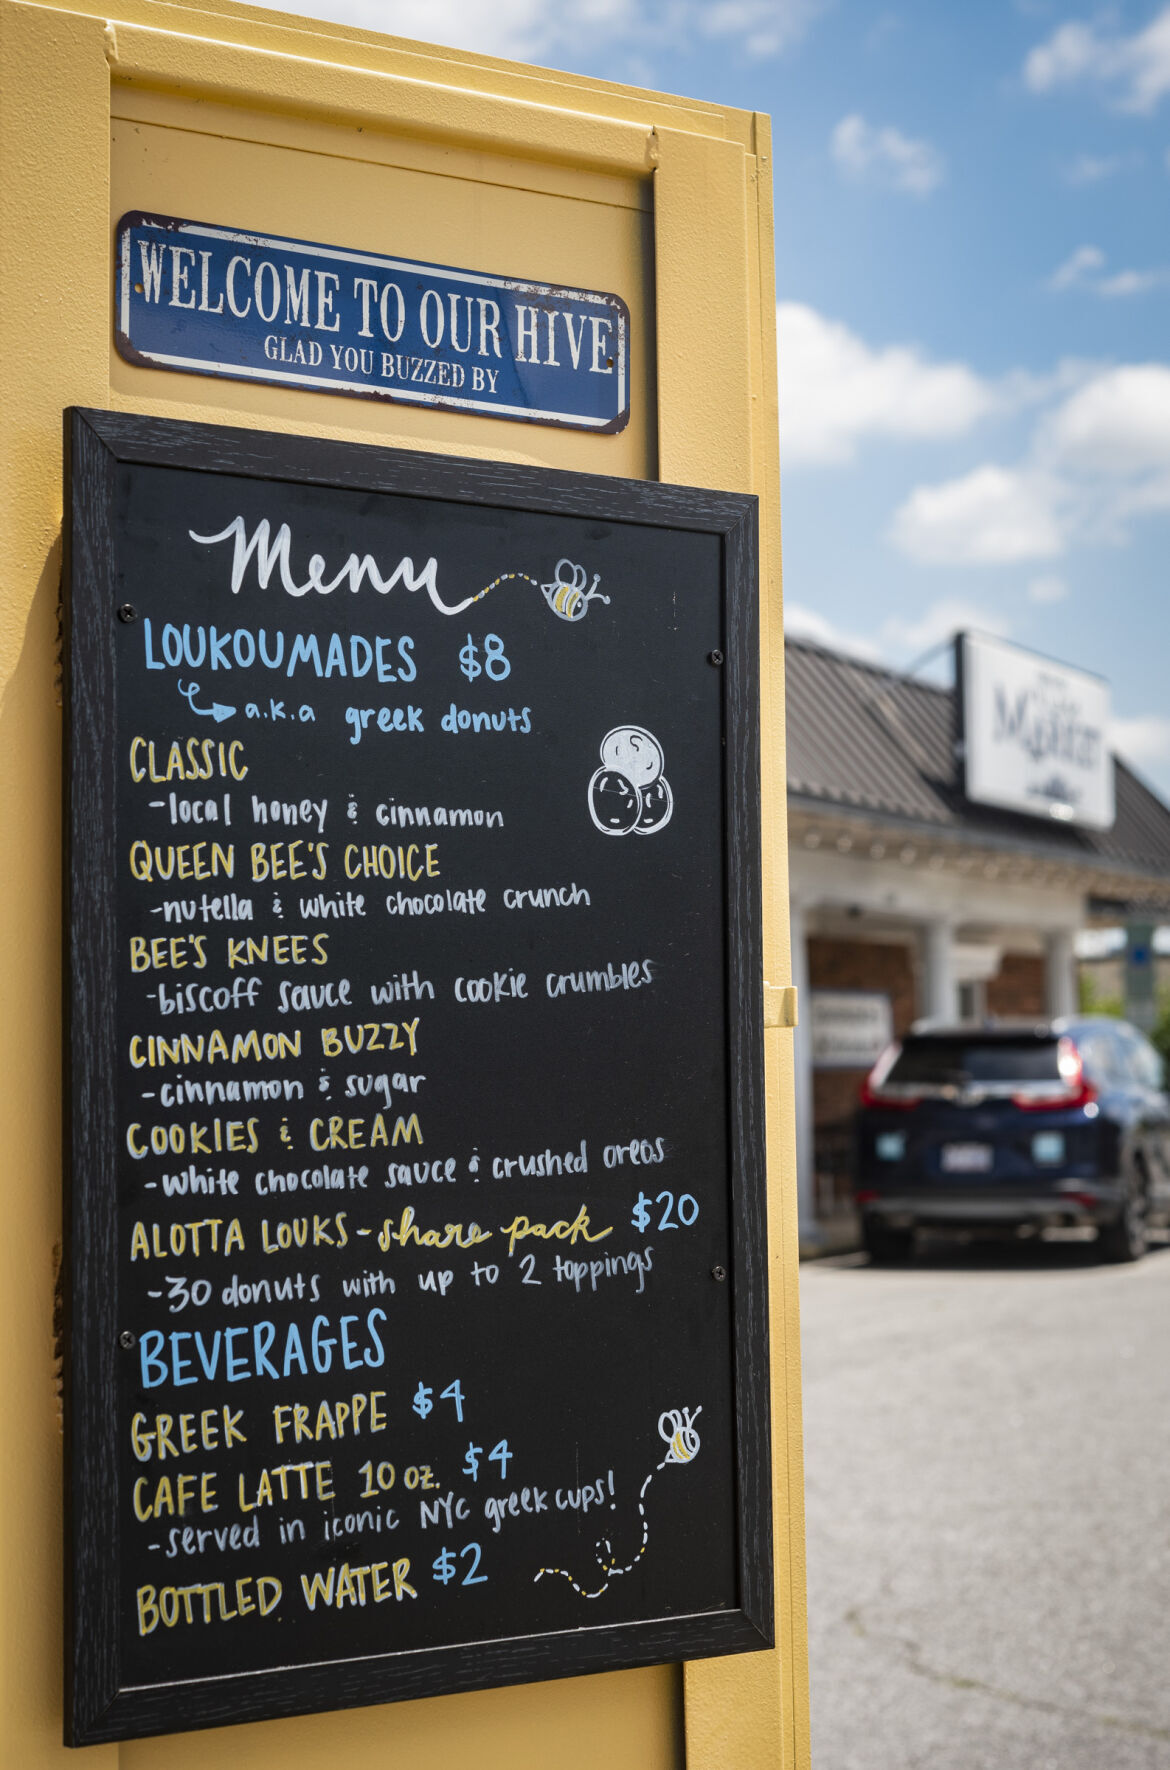 WELCOME TO OUR HIVE
GLAD YOU BUZZED BY
Menu
LOUKOUMADES $8
a.k.a greek donuts
CLASSIC
-local honey & cinnamon
QUEEN BEE'S CHOICE
-nutella & white chocolate crunch
BEE'S KNEES
-biscoff sauce with cookie crumbles
CINNAMON BUZZY
-cinnamon & sugar
COOKIES & CREAM
-white chocolate sauce & crushed oreos
ALOTTA LOUKS-share pack $20
-30 donuts with up to 2 toppings
BEVERAGES
GREEK FRAPPE $4
CAFE LATTE 10 oz. $4
-served in iconic NYC greek cups!
BOTTLED WATER $2
MARKET